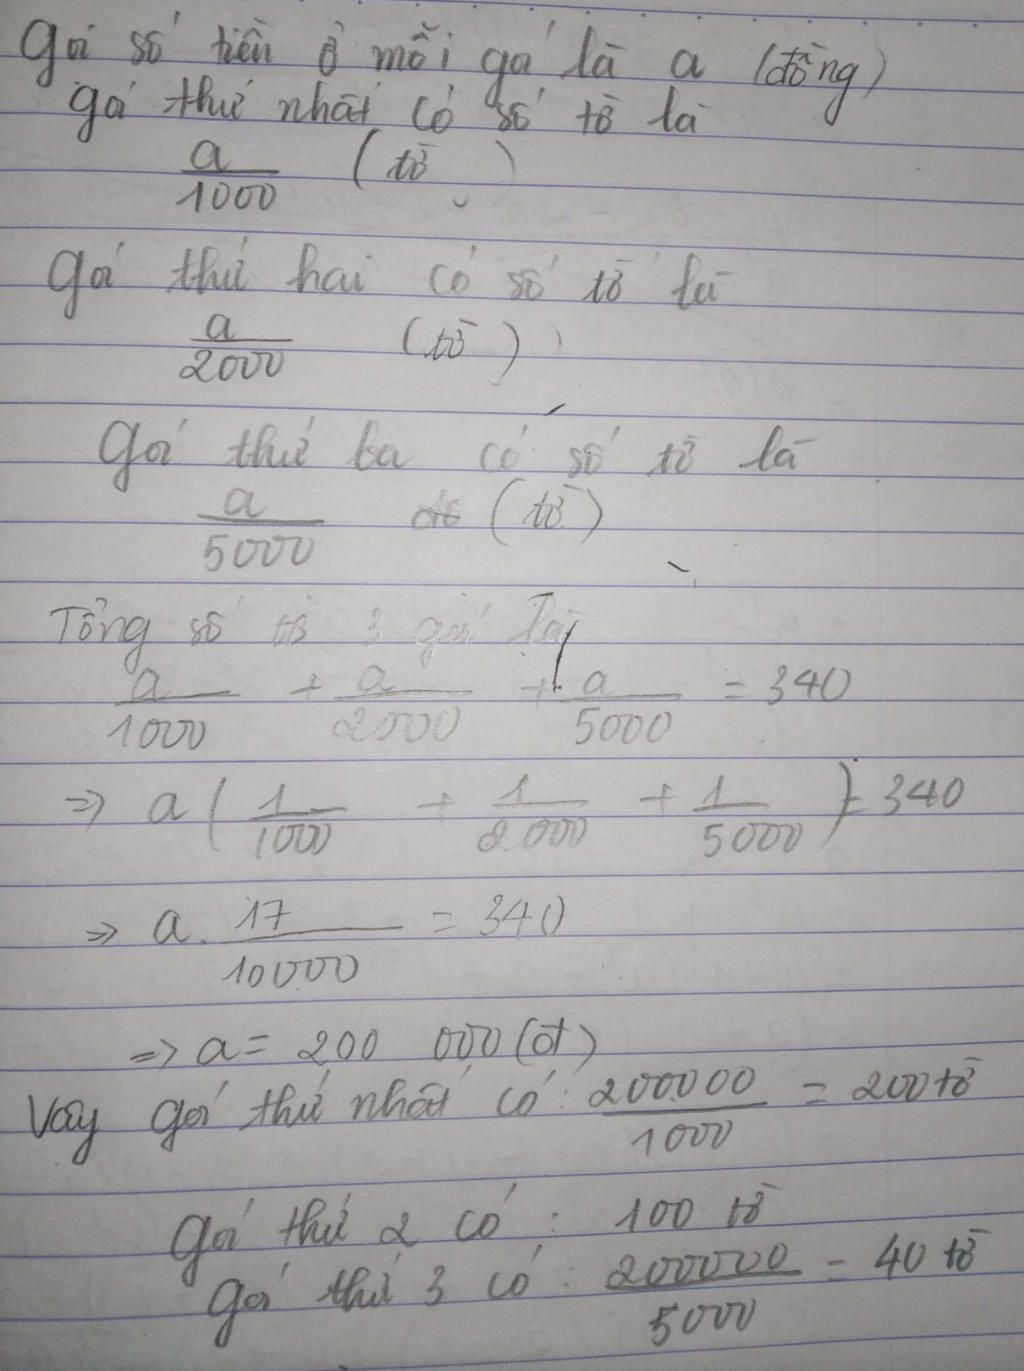 Gọi số tiền ở mỗi gói là a (đồng)
gói thứ nhất có số tờ là
a/1000 (tờ)
Gói thứ hai có số tờ là
a/2000 (tờ)
Gói thứ ba có số tờ là
a/5000 (tờ)
Tổng số tờ 3 gói là
a/1000 + a/2000 + a/5000 = 340
=> a(1/1000 + 1/2000 + 1/5000) = 340
=> a. 17/10000 = 340
=> a = 200 000(đ)
Vậy gói thứ nhất có: 200000/1000 = 200 tờ
gói thứ 2 có: 100 tờ
gói thứ 3 có: 200000/5000 = 40 tờ